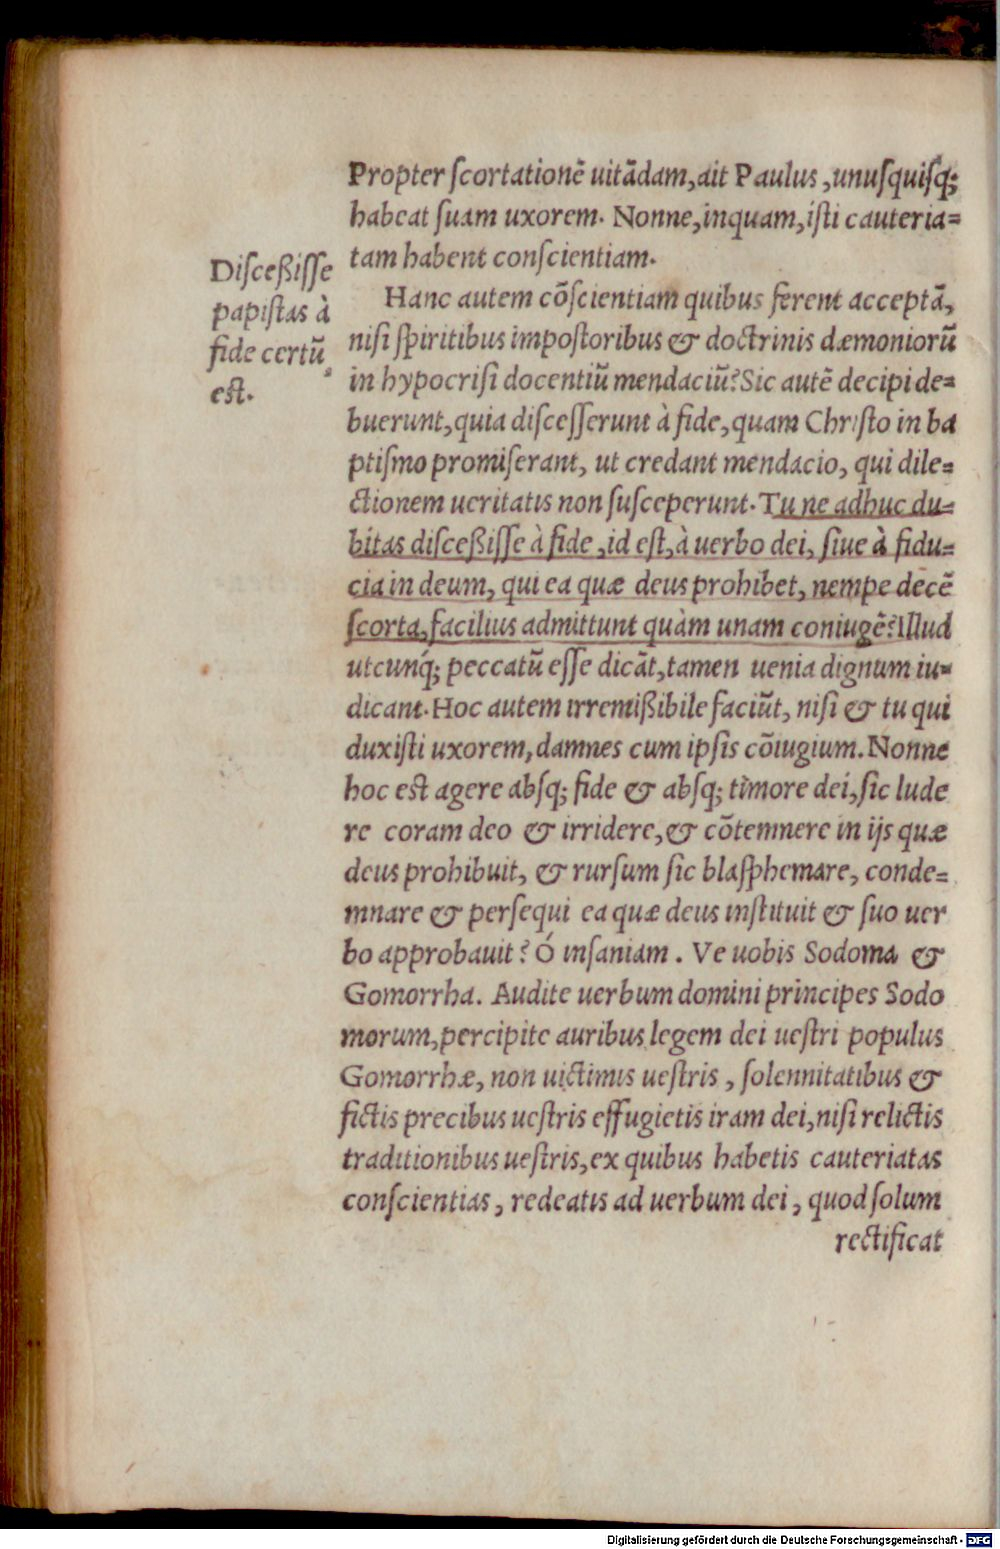 Propter ſcortationē uitādam, ait Paulus, unuſquiſq;
habeat ſuam uxorem. Nonne, inquam, iſti cauteria=
tam habent conſcientiam.
Diſceßiſſe
papiſtas à
fide certū
eſt.
Hanc autem cōſcientiam quibus ferent acceptā,
niſi ſpiritibus impoſtoribus & doctrinis dæmoniorū
in hypocriſi docentiū mendaciū? Sic autē decipi de=
buerunt, quia diſceſſerunt à fide, quam Chriſto in ba
ptiſmo promiſerant, ut credant mendacio, qui dile=
ctionem ueritatis non ſuſceperunt. Tu ne adhuc du=
bitas diſceßiſſe à fide, id eſt, à uerbo dei, ſiue à fidu=
cia in deum, qui ea quæ deus prohibet, nempe decē
ſcorta, facilius admittunt quàm unam coniugē? Illud
utcunq́; peccatū eſſe dicāt, tamen uenia dignum iu=
dicant. Hoc autem irremißibile faciūt, niſi & tu qui
duxiſti uxorem, damnes cum ipſis cōiugium. Nonne
hoc eſt agere abſq; fide & abſq; timore dei, ſic lude
re coram deo & irridere, & cōtemnere in ijs quæ
deus prohibuit, & rurſum ſic blaſphemare, conde=
mnare & perſequi ea quæ deus inſtituit & ſuo uer
bo approbauit? Ó inſaniam. Ve uobis Sodoma &
Gomorrha. Audite uerbum domini principes Sodo
morum, percipite auribus legem dei ueſtri populus
Gomorrhæ, non uictimis ueſtris, ſolennitatibus &
fictis precibus ueſtris effugietis iram dei, niſi relictis
traditionibus ueſtris, ex quibus habetis cauteriatas
conſcientias, redeatis ad uerbum dei, quod ſolum
rectificat
Digitalisierung gefördert durch die Deutsche Forschungsgemeinschaft - DFG